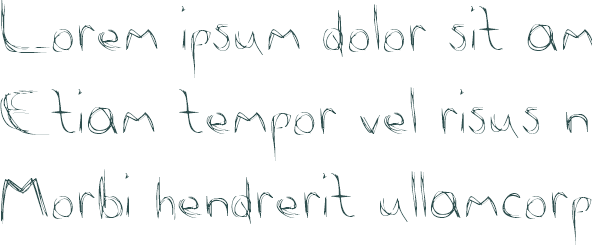 Lorem ipsum dolor sit am
Etiam tempor vel risus n
Morbi hendrerit ullamcorp